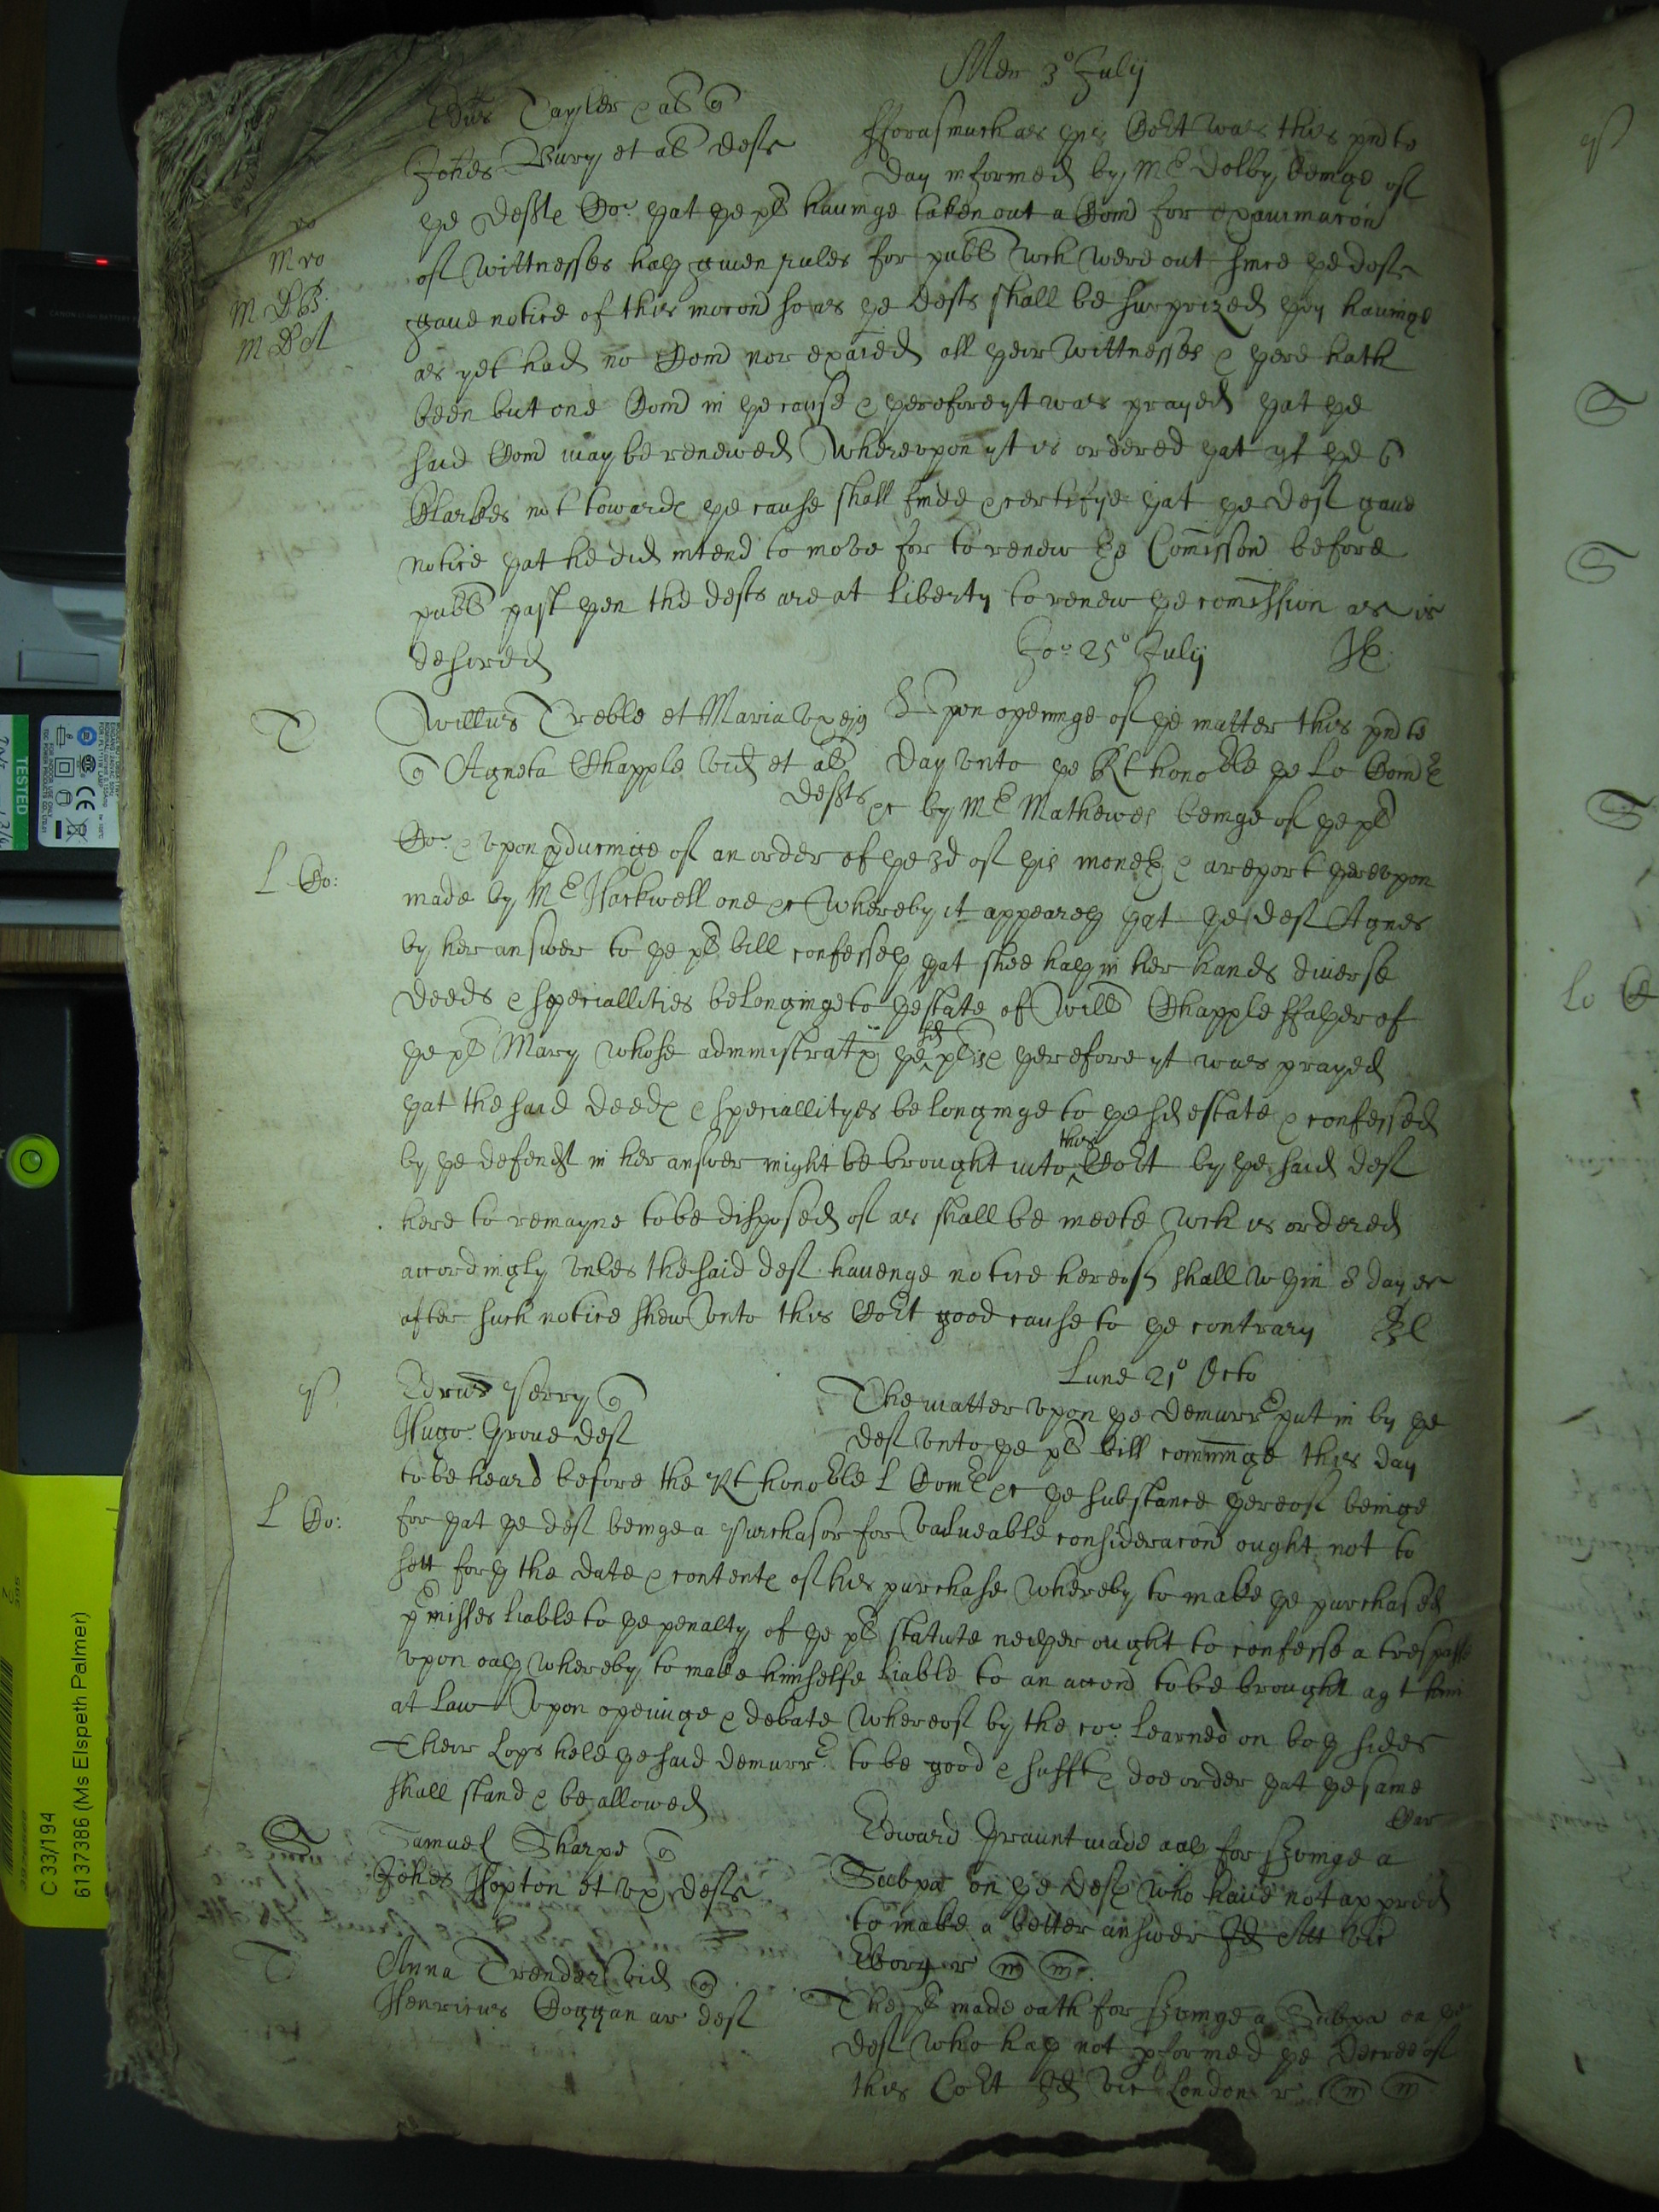 Mer 3o July
Tayler & al q
Johes Bury et al defts
fforasmuch as this Cort was this pnte
day informed by Mr Dolby beinge of
the defts Co: that the pl haueinge taken out a Comō for exaiminacōn
of wittnesses hath giuen rules for publ wch were out since the defts
gaue notice of this mocon soe as the defts shall be surprized they haueinge
as yet had no Comō nor exaied all their wittnesses & there hath
been but one Comō in the cause & therefore yt was prayed that the
said Comō may be renewed Wherevpon yt is ordered that yf the 6
Clarkes not towards the cause shall finde & certifye that the deft gaue
notice that he did intend to move for to renew the Comission before
publ past then the defts are at liberty to renew the comission as is
desired
Jo: 25o July
Willus Treble et Maria vx ejus
q Agneta Chapple vid et al
defts
Vpon openinge of the matter this pnte
day vnto the Rt honoble the Lo Comrs
&c by Mr Mathewes beinge of the pl
L Co:
Co: & vpon pducinge of an order of the 3d of this moneth & a report therevpon
made by Mr Hackwell one &c Whereby it appeareth that the deft Agnes
by her answer to the pl bill confesseth that shee hath in her hands diuerse
deeds & speciallities belonginge to the state of Will Chapple ffather of
the pl Mary whose administratx the sd pl is & therefore yt was prayed
that the said deeds & speciallityes belonginge to the sd estate & confessed
by the defendt in her answer might be brought into this Cort by the said deft
here to remayne to be disposed of as shall be meete wch is ordered
accordingly vnles the said deft hauenge notice hereof shall wthin 8 dayes
after such notice shew vnto this Cort good cause to the contrary
Lune 21o Octo
P
Edrus Perry q
Hugo: Groue deft
The matter vpon the demurrr put in by the
deft vnto the pl bill comminge this day
L Co:
to be heard before the Rt honoble L Comrs &c the substance thereof beinge
for that the deft beinge a Purchasor for valueable consideracon ought not to
sett forth the date & contents of his purchase Whereby to make the purchased
pmisses liable to the penalty of the pl statute neither ought to confesse a trespasse
vpon oath whereby to make himselfe liable to an accōn to be brought agt him
at Law Vpon openinge & debate Whereof by the co: Learned on both sides
Their Lopps held the said demurrr to be good & sufft & doe order that the same
shall stand & be allowed
Samuel Sharpe q
Johes Hopton et vx defts
Edward Graunt made oath for svinge a
Subpa on the defts who haue not appred
to make a better answer
T
Anna Trender vid q
Henricus Coggan ar deft
The pl made oath for svinge a Subpa on the
deft who hath not pformed the decree of
this Cort vic London r
TESTED
C 33/194
61373386 (Ms Elspeth Palmer)